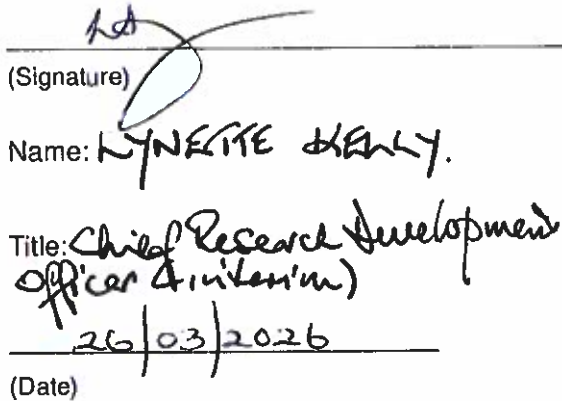 (Signature)
Name: LYNETTE KELLY.
Title: Chief Research Development
Officer (interim)
26/03/2026
(Date)